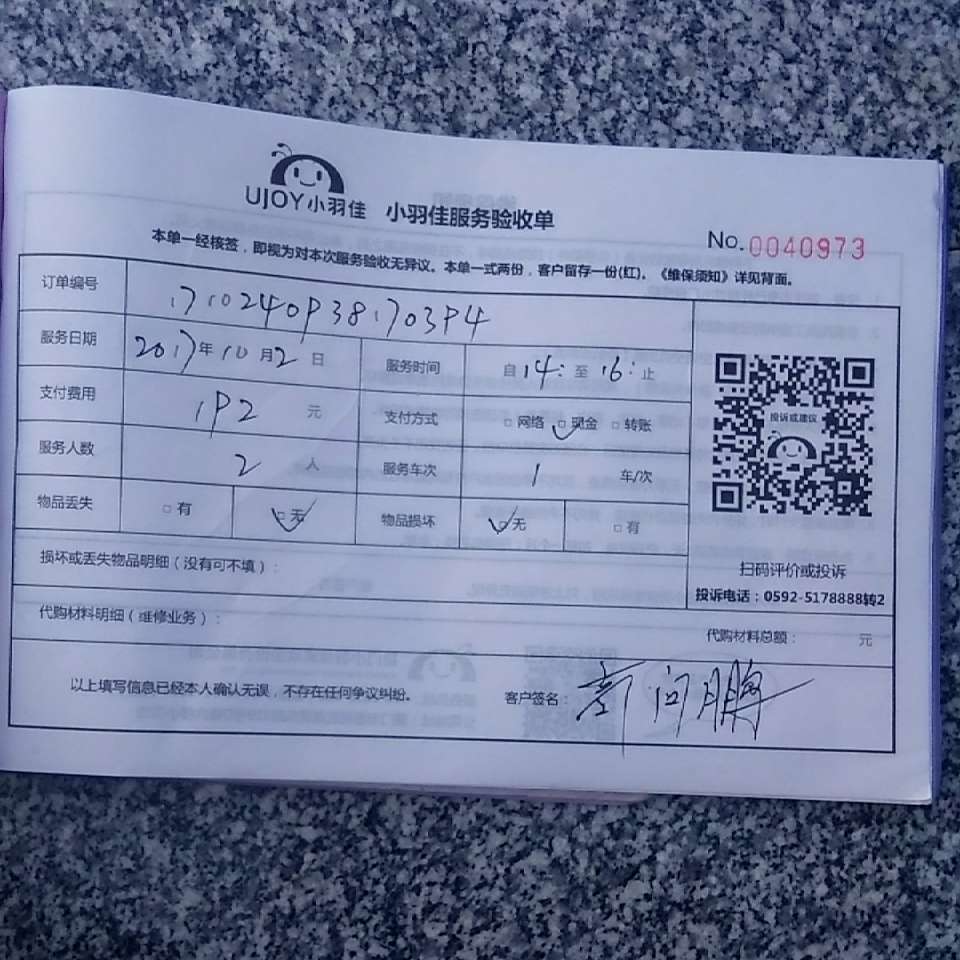 UJOY小羽佳 小羽佳服务验收单
No.0040973
本单一经核签，即视为对本次服务验收无异议。本单一式两份，客户留存一份(红)。《维保须知》详见背面。
订单编号 1710240938170394
服务日期 2017年10月2日 服务时间 自14:至16:止
支付费用 192元 支付方式 □网络 □现金 □转账
服务人数 2人 服务车次 1 车/次
物品丢失 □有 □无 物品损坏 □无 □有
损坏或丢失物品明细（没有可不填）：
代购材料明细（维修业务）：
代购材料总额： 元
以上填写信息已经本人确认无误，不存在任何争议纠纷。 客户签名：
投诉或建议
扫码评价或投诉
投诉电话：0592-5178888转2